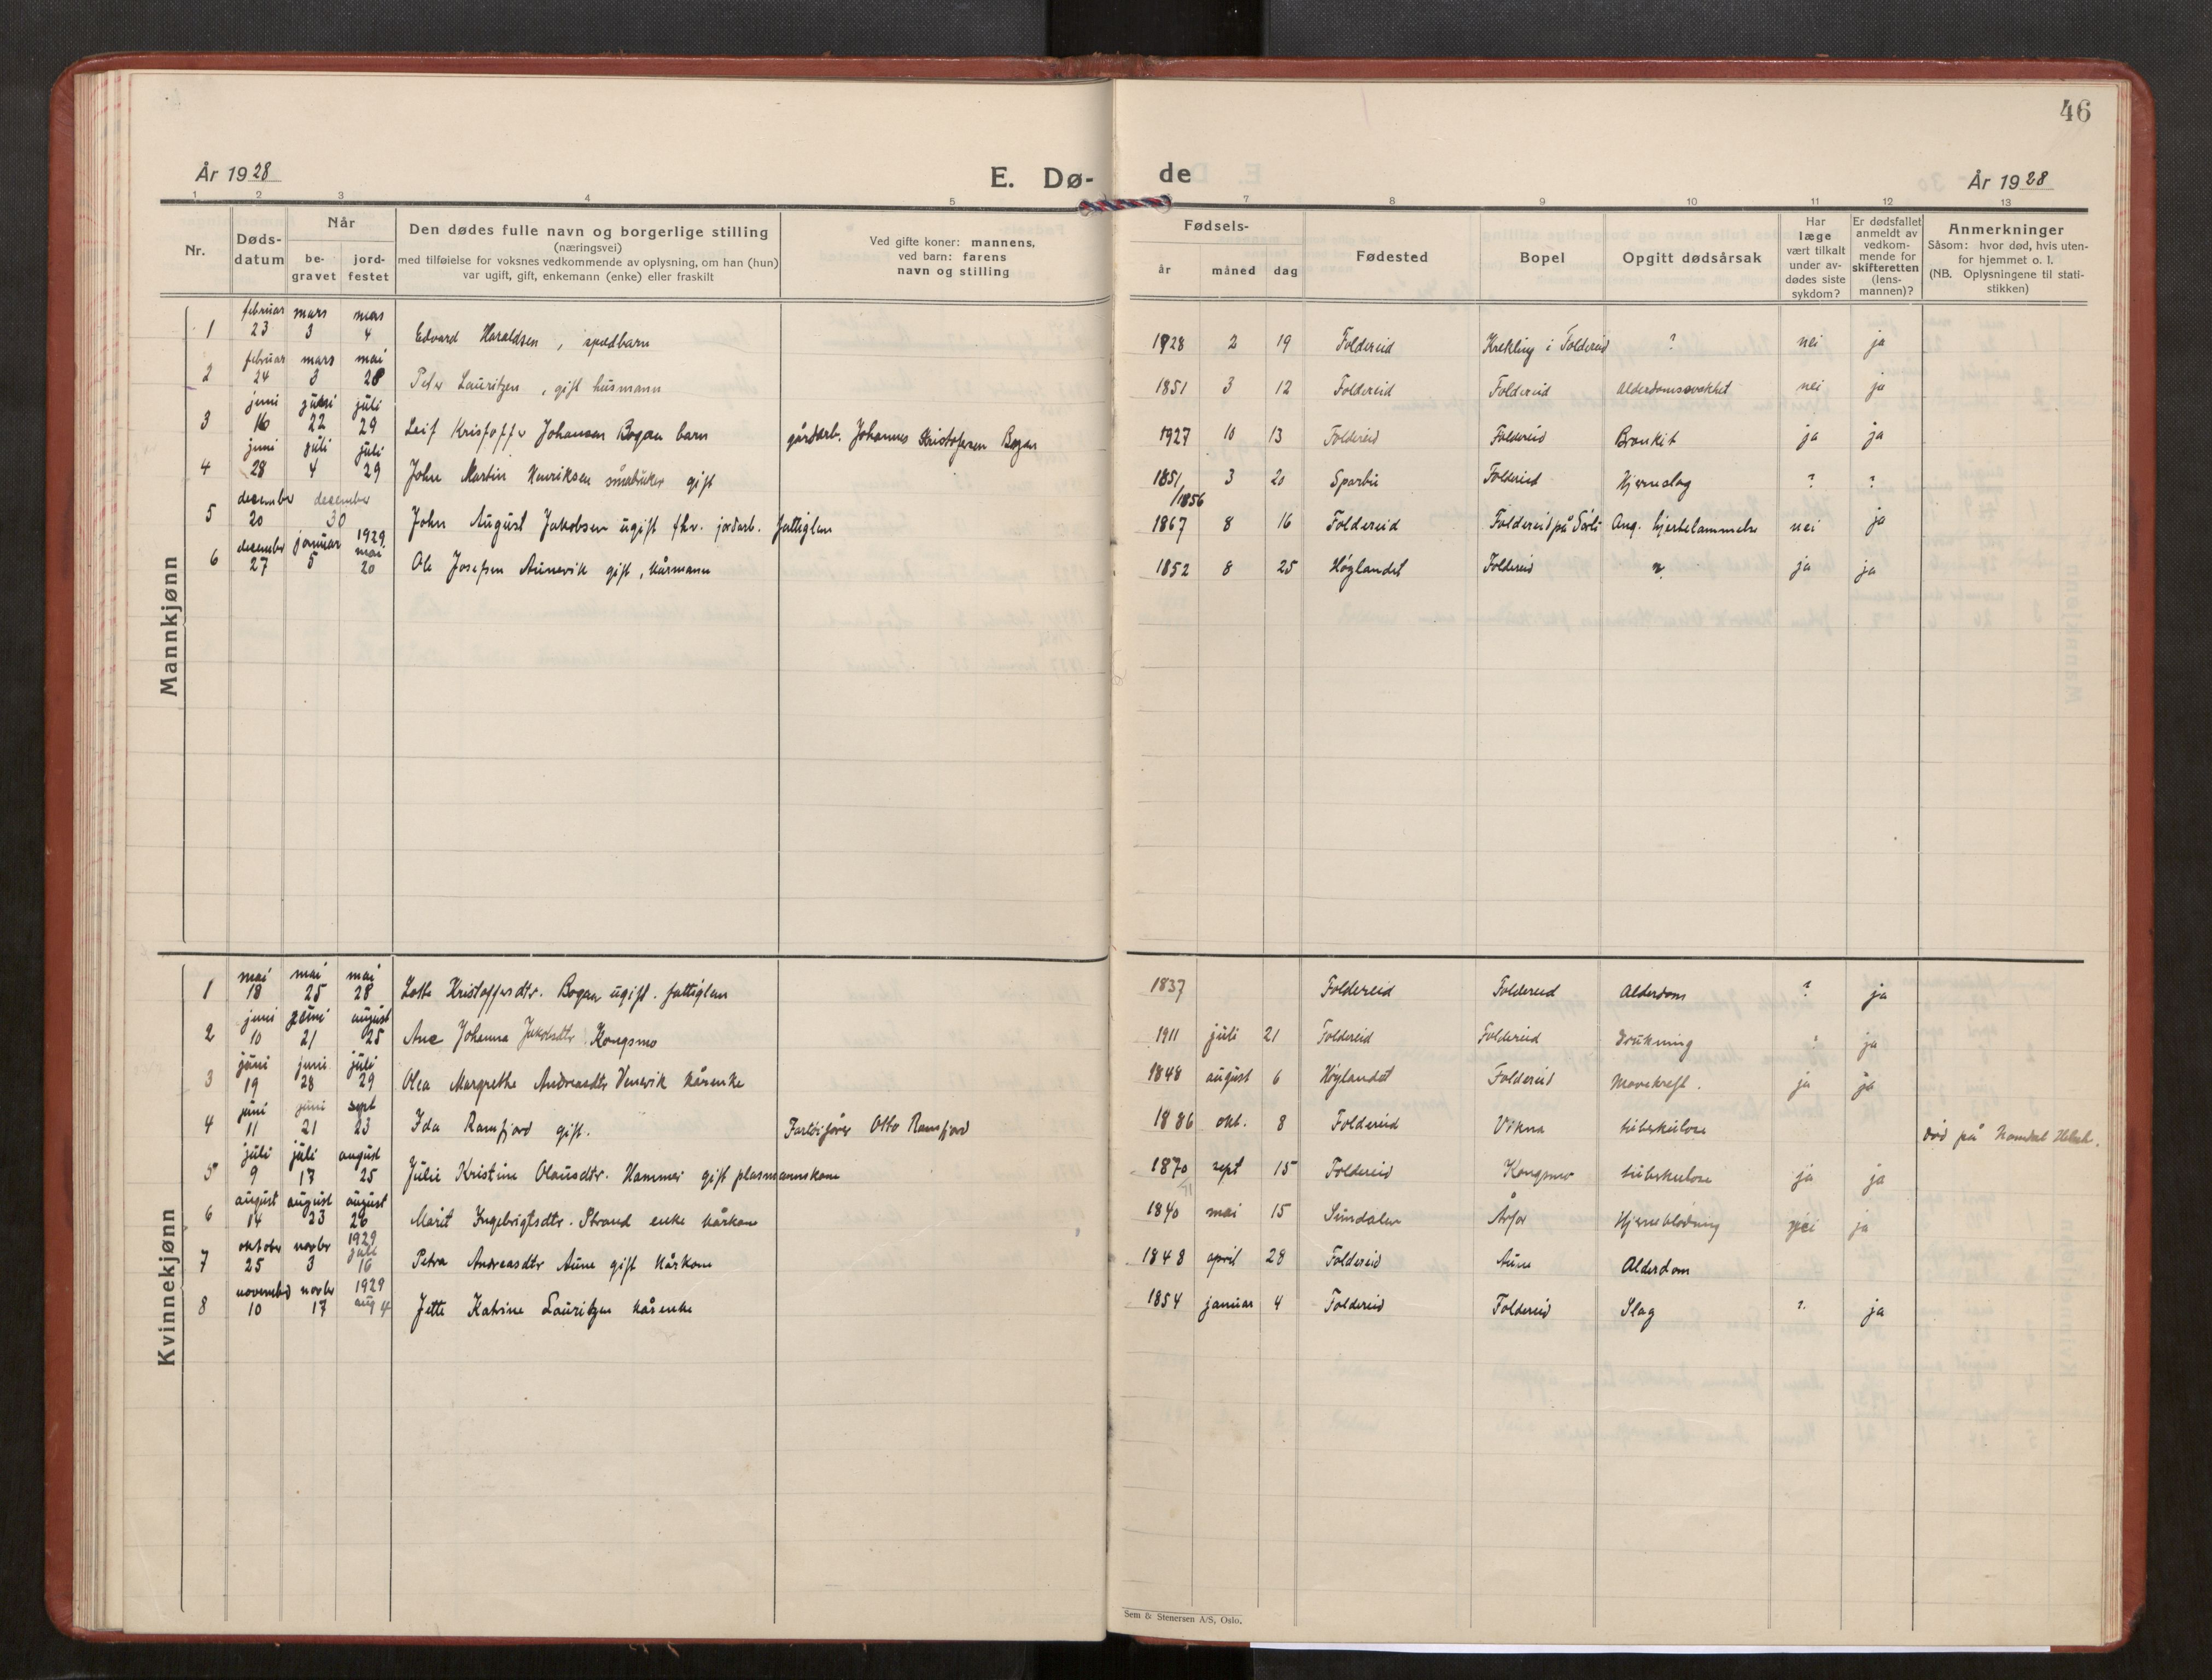 46
År 1928
E. Dø-
de
År 1928
1 2 3 4 5 7 8 9 10 11 12 13
Nr.
Døds-
datum
Når
be-
gravet
jord-
festet
Den dødes fulle navn og borgerlige stilling
(næringsvei)
med tilføielse for voksnes vedkommende av oplysning, om han (hun)
var ugift, gift, enkemann (enke) eller fraskilt
Ved gifte koner: mannens,
ved barn: farens
navn og stilling
Fødsels-
år måned dag
Fødested
Bopel
Opgitt dødsårsak
Har
læge
vært tilkalt
under av-
dødes siste
sykdom?
Er dødsfallet
anmeldt av
vedkom-
mende for
skifteretten
(lens-
mannen)?
Anmerkninger
Såsom: hvor død, hvis uten-
for hjemmet o. l.
(NB. Oplysningene til stati-
stikken)
Mannkjønn
februar mars mars
1 23 3 4 Edvard Haraldsen, spedbarn 1928 2 19 Foldereid Krekling i Foldereid ? nei ja
februar mars mai
2 24 3 28 Peter Lauritzen, gift husmann 1851 3 12 Foldereid Foldereid Alderdomssvakhet nei ja
juni juni juli
3 16 22 29 Leif Kristoffer Johansen Bogan barn gårdarb. Johannes Kristofersen Bogan 1927 10 13 Foldereid Foldereid Bronkit ja ja
juni juli juli
4 28 4 29 John Martin Henriksen småbruker gift 1851/1856 3 20 Sparbu Foldereid Hjerneslag ? ?
desember desember
5 20 30 John August Jakobsen ugift fhv. jordarb. fattiglem 1867 8 16 Foldereid Foldereid på Sørli Ang. hjertelammelse nei ja
desember januar 1929 mai
6 27 5 20 Ole Josefsen Aunevik gift, kårmann 1852 8 25 Høylandet Foldereid ? ja ja
Kvinnekjønn
mai mai mai
1 18 25 28 Lotte Kristoffersdtr. Bogan ugift. fattiglem 1837 Foldereid Foldereid Alderdom ? ja
juni juni august
2 10 21 25 Ane Johanna Jakobsdtr. Kongsmo 1911 juli 21 Foldereid Foldereid Drukning ? ja
juni juni juli
3 19 28 29 Olea Margrethe Andreasdtr Venevik kårenke 1848 august 6 Høylandet Foldereid Mavekreft. ja ja
juni juni sept
4 11 21 23 Ida Ramfjord gift. Otto Ramfjord 1886 okt. 8 Foldereid Vikna tuberkulose død på Namdal
juli juli august
5 9 17 25 Julie Kristine Olausdtr. Hammer gift plasmannskone 1870 sept 15 Foldereid Kongsmo tuberkulose ja ja
august august august
6 14 23 26 Marit Ingebrigtsdtr. Strand enke kårkone 1840 mai 15 Sundalen Årfor Hjerneblødning nei ja
oktober novbr 1929 juli
7 25 3 16 Petra Andreasdtr Aune gift kårkone 1848 april 28 Foldereid Aune Alderdom
november novbr 1929
8 10 17 aug 4 Jette Katrine Lauritzen kårenke 1854 januar 4 Foldereid Foldereid Slag ? ja
Sem & Stenersen A/S, Oslo.